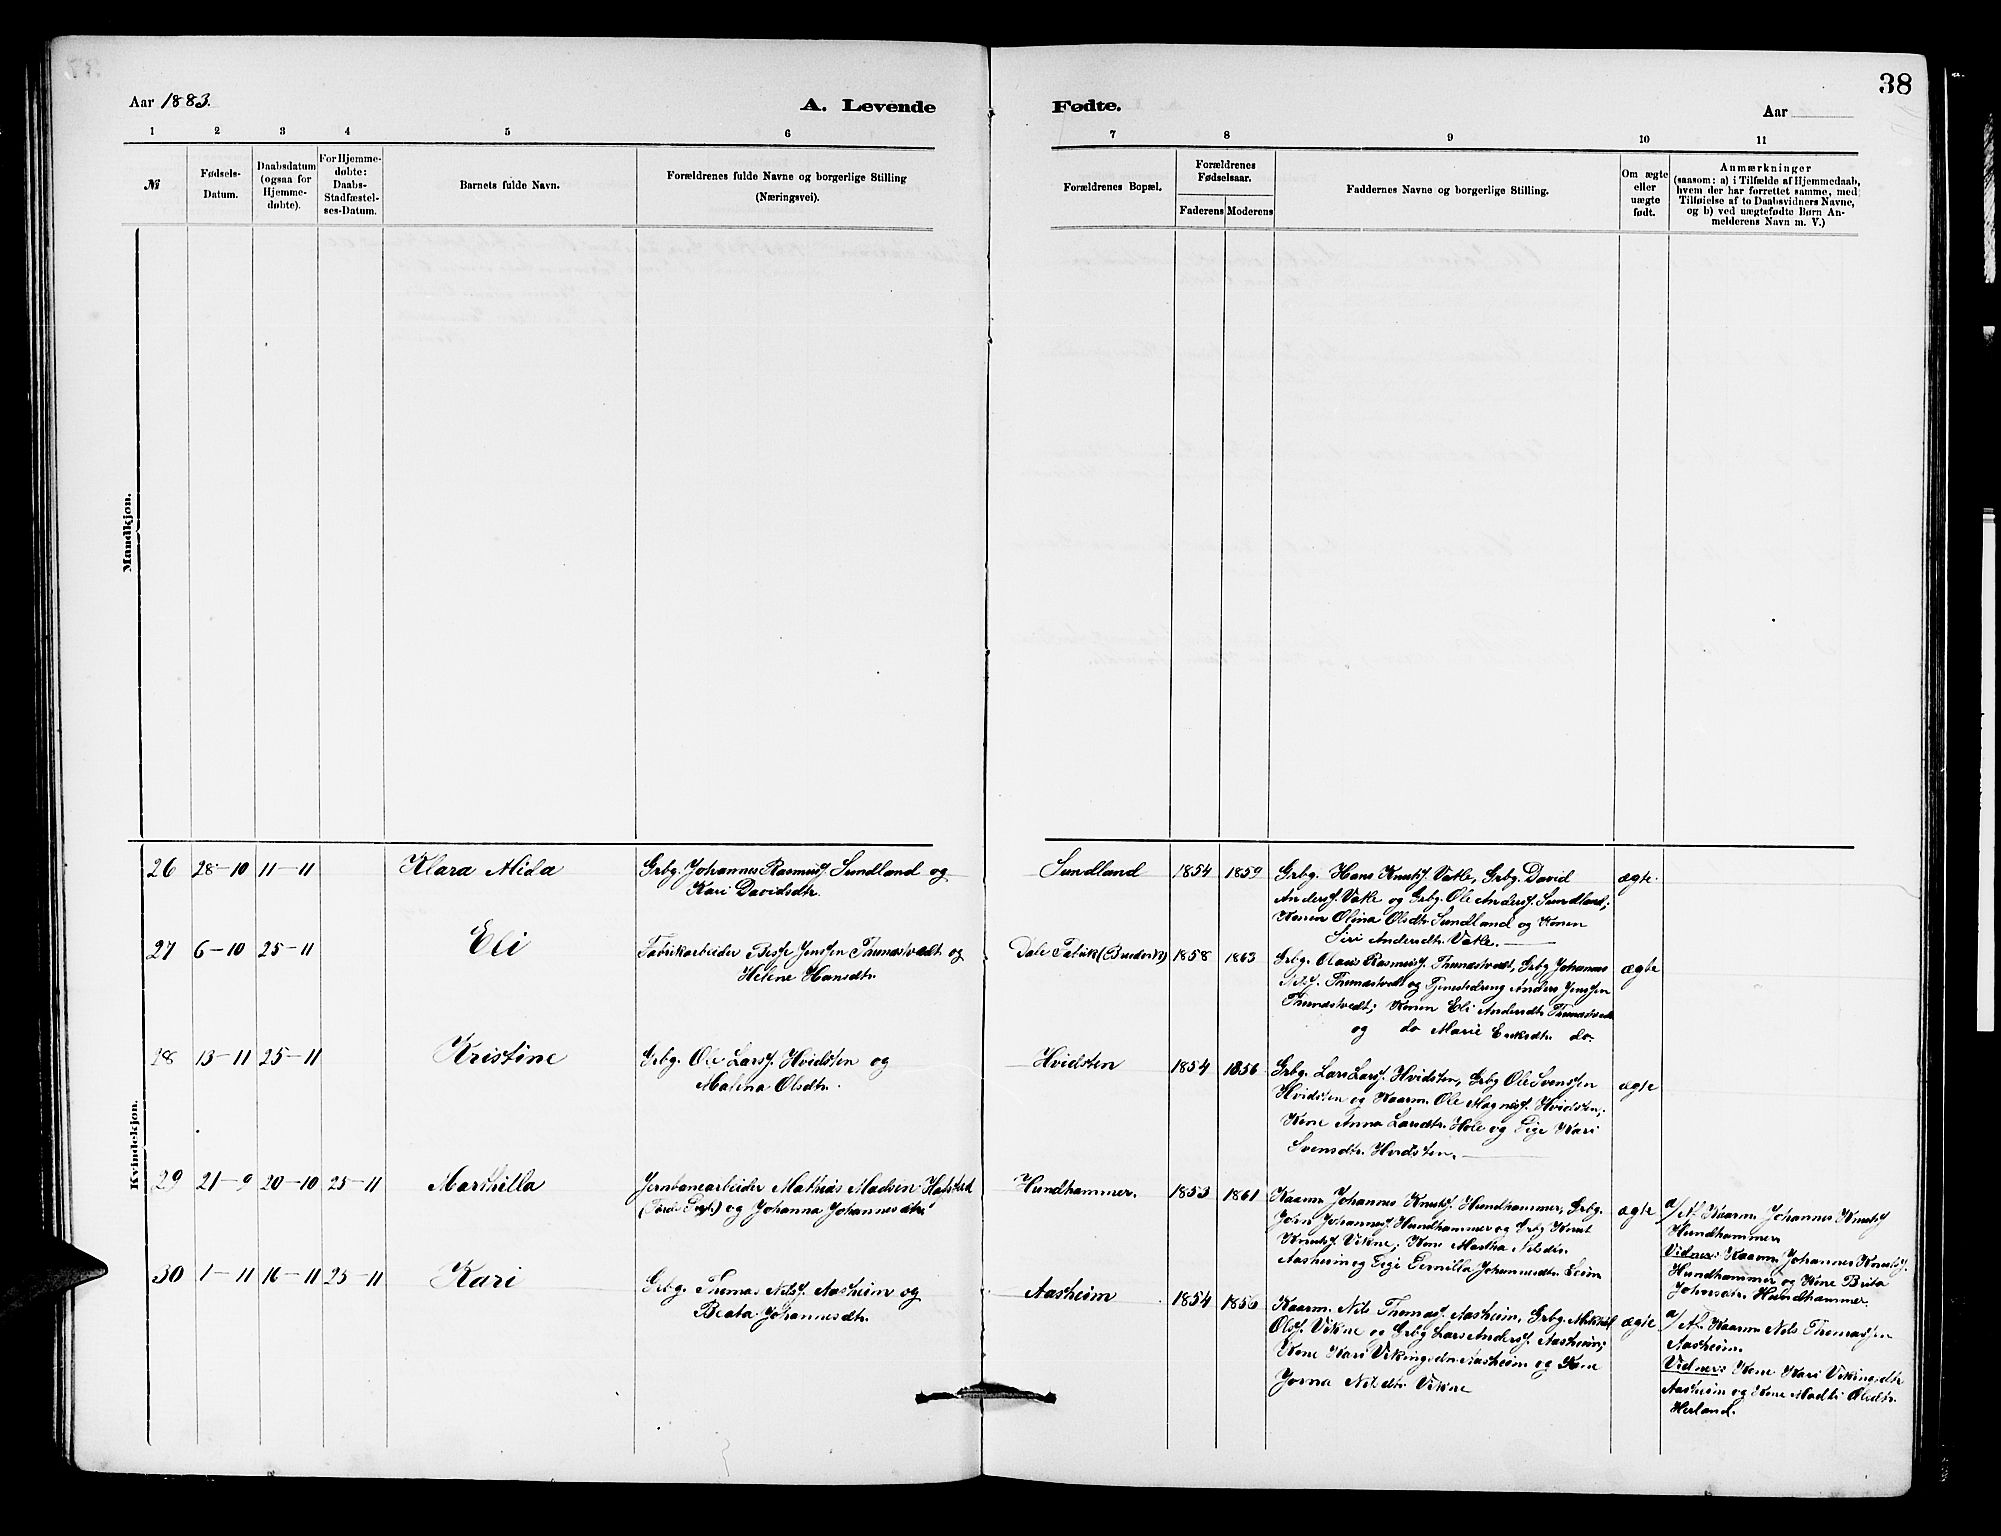 38
Aar 1883.
A. Levende Fødte.
Aar
1 2 3 4 5 6 7 8 9 10 11
№
Fødsels-
Datum.
Daabsdatum
(ogsaa for
Hjemme-
døbte).
For Hjemme-
døbte:
Daabs-
Stadfæstel-
ses-Datum.
Barnets fulde Navn.
Forældrenes fulde Navne og borgerlige Stilling
(Næringsvei).
Forældrenes Bopæl.
Forældrenes
Fødselsaar.
Faderens Moderens
Faddernes Navne og borgerlige Stilling.
Om ægte
eller
uægte
født.
Anmærkninger
(saasom: a) i Tilfælde af Hjemmedaab,
hvem der har forrettet samme, med
Tilføielse af to Daabsvidners Navne,
og b) ved uægtefødte Børn An-
melderens Navn m. V.)
Mandkjøn.
Kvindekjøn.
26 28-10 11-11 Klara Alida
Grbg. Johannes Rasmuss. Sundland og
Kari Davidsdtr
Sundland 1854 1859
Grbg. Hans Knuts. Vatle, Grbg. David
Anderss. Vatle og Grbg. Ole Anderss. Sundland;
Konen Olina Olsdtr. Sundland og Konen
Siri Andersdtr. Vatle.
ægte.
27 6-10 25-11 Eli
Fabrikarbeider Jenssen Thunestvedt og
Helene Hansdtr.
Dale Fabrik 1858 1863
Grbg. Olaus Rasmuss. Thunestvedt, Grbg Johannes
Nils. Thunestvedt og Anders Jenssen
Thunestvedt; Konen Eli Andersdtr. Thunestvedt
og do Marie Eriksdtr. do
ægte
28 13-11 25-11 Kristine
Grbg. Ole Larss. Hvidsten og
Malena Olsdtr.
Hvidsten 1854 1856
Grbg. Lars Larss. Hvidsten, Grbg Ole Svenssen
Hvidsten og Kaarm. Ole Magness. Hvidsten;
Kone Anna Larsdtr. Hole og Pige Kari
Svensdtr. Hvidsten.
ægte
29 21-9 20-10 25-11 Marthilla
Jernbanearbeider Mathias Madsen Halstad
og Johanna Johannesdtr.
Hundhammer. 1853 1861
Kaarm Johannes Knuts. Hundhammer, Grbg.
John Johanness. Hundhammer og Grbg Knut
Knuts. Vikne; Kone Martha Nilsdtr.
Aasheim og Pige Pernilla Johannesdtr. Leiren
ægte
a/ Af Kaarm. Johannes Knuts.
Hundhammer
Vidner: Kaarm Johannes Knuts.
Hundhammer og Kone Brita
Johnsdtr. Hundhammer.
30 1-11 16-11 25-11 Kari
Grbg. Thomas Nils. Aasheim og
Beata Johannesdtr.
Aasheim 1854 1856
Kaarm. Nils Thomass. Aasheim, Grbg. Mikkel
Ols. Vikne og Grbg Lars Anderss. Aasheim;
Kone Kari Vikingsdtr Aasheim og Kone
Jorna Nilsdtr Vikne
ægte
a/ Af Kaarm Nils Thomassen
Aasheim.
Vidner: Kone Kari Vikingsdtr
Aasheim og Kone Madli Olsdtr.
Herland.